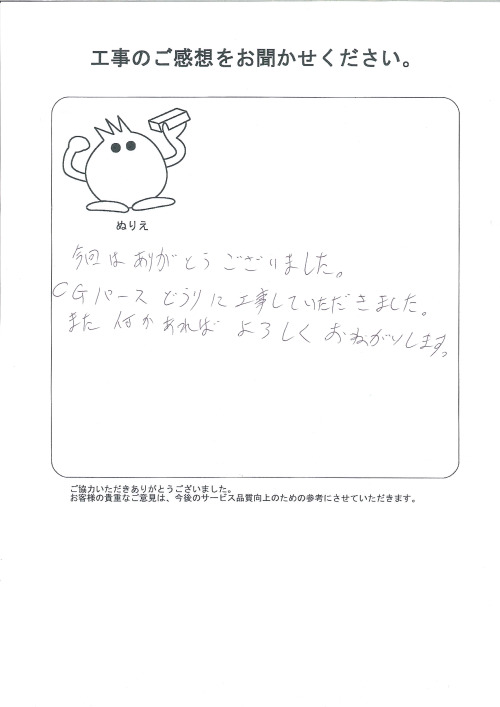 工事のご感想をお聞かせください。
ぬりえ
今回は ありがとう ございました。
CGパース どうりに 工事していただきました。
また 何かあれば よろしく おねがいします。
ご協力いただきありがとうございました。
お客様の貴重なご意見は、今後のサービス品質向上のための参考にさせていただきます。